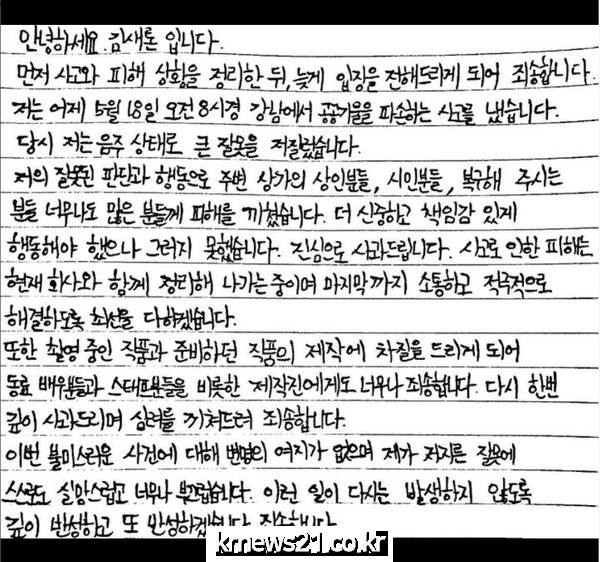 안녕하세요. 김새론 입니다.
먼저 사고와 피해 상황을 정리한 뒤, 늦게 입장을 전해드리게 되어 죄송합니다.
저는 어제 5월 18일 오전 8시경 강남에서 공공기물을 파손하는 사고를 냈습니다.
당시 저는 음주 상태로 큰 잘못을 저질렀습니다.
저의 잘못된 판단과 행동으로 주변 상가의 상인분들, 시민분들, 복구해 주시는
분들 너무나도 많은 분들께 피해를 끼쳤습니다. 더 신중하고 책임감 있게
행동해야 했으나 그러지 못했습니다. 진심으로 사과드립니다. 사고로 인한 피해는
현재 회사와 함께 정리해 나가는 중이며 마지막까지 소통하고 적극적으로
해결하도록 최선을 다하겠습니다.
또한 촬영 중인 작품과 준비하던 작품의 제작에 차질을 드리게 되어
동료 배우분들과 스태프분들을 비롯한 제작진에게도 너무나 죄송합니다. 다시 한번
깊이 사과드리며 심려를 끼쳐드려 죄송합니다.
이번 불미스러운 사건에 대해 변명의 여지가 없으며 제가 저지른 잘못에
스스로도 실망스럽고 너무나 부끄럽습니다. 이런 일이 다시는 발생하지 않도록
깊이 반성하고 또 반성하겠습니다. 죄송합니다.
kmews21.co.kr